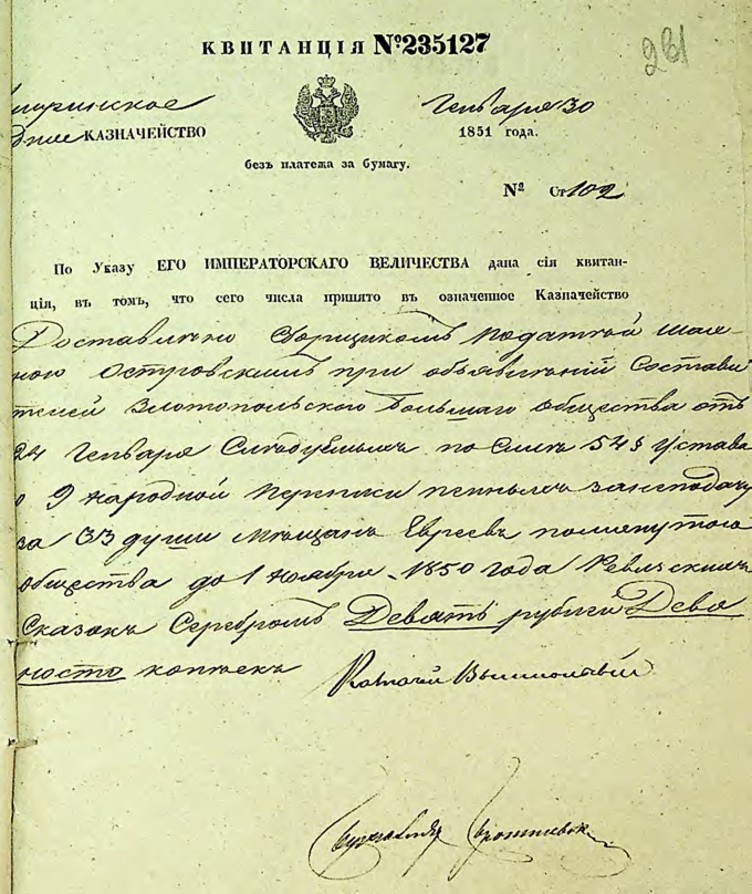 КВИТАНЦІЯ №235127
261
Генваря 30
КАЗНАЧЕЙСТВО
1851 года.
безъ платежа за бумагу.
№ Ст 102
По Указу ЕГО ИМПЕРАТОРСКАГО ВЕЛИЧЕСТВА дана сія квитан-
ція, въ томъ, что сего числа принято въ означенное Казначейство
Доставлено Сборщикомъ Податной
Островскимъ при объявленіи Состави
телей Златопольского Большаго Общества отъ
24 Генваря по силе 54 § Устава
о 9 народной Переписи за неподачу
за 33 души Мещанъ Евреевъ помянутого
общества до 1 Ноября 1850 года Ревизскихъ
Сказокъ Серебромъ Девять рублей Дево
носто копеекъ